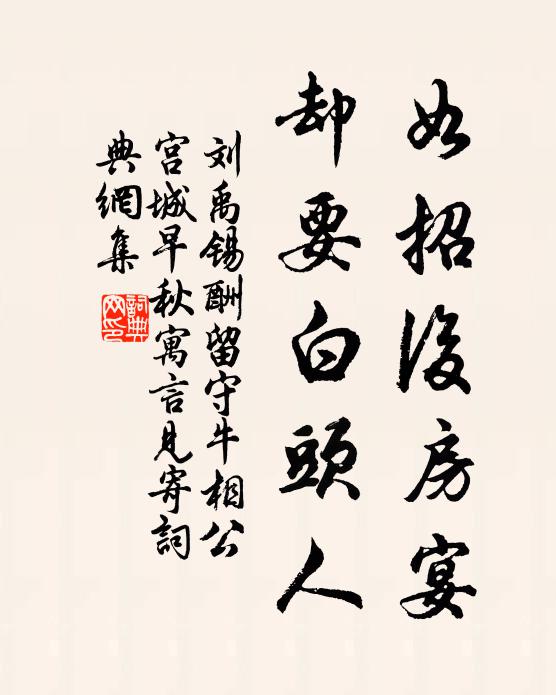 如招後房宴
却要白頭人
刘禹锡酬留守牛相公
宫城早秋寓言見寄詞
典網集
詞典网印